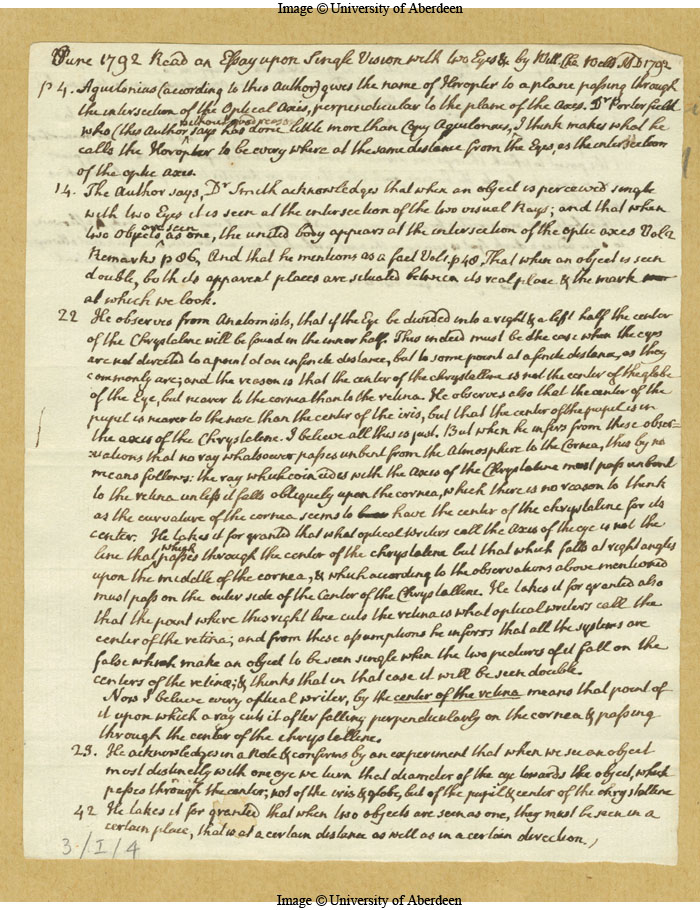 Image © University of Aberdeen
June 1792 Read an Essay upon Single Vision with two Eyes &c by Will. Cha. Wells M D 1792
p 4. Aguilonius (according to this Author) gives the name of Horopter to a plane passing through
the intersection of the Optical Axis, perpendicular to the plane of the Axes. Dr Porterfield
without good reason
who (this Author says has done little more than Copy Aguilonius, I think makes what he
calls the Horopter to be every where at the same distance from the Eyes, as the intersection
of the optic Axes.
14. The Author says, Dr Smith acknowledges that when an object is perceived single
with two Eyes it is seen at the intersection of the two visual Rays; and that when
and seen
two Objects as one, the united body appears at the intersection of the optic axes Vol 2
Remarks p 86, And that he mentions as a fact Vol 1. p 48, That when an object is seen
double, both its apparent places are situated between its real place & the mark
at which we look.
22 He observes from Anatomists, that if the Eye be divided into a right & a left half the center
of the Chrystaline will be found in the inner half. This indeed must be the case when the eyes
are not directed to a point at an infinite distance, but to some point at a finite distance, as they
commonly are; and the reason is that the center of the chrystalline is not the center of the globe
of the Eye, but nearer to the cornea than to the retina. He observes also that the center of the
pupil is nearer to the nose than the center of the iris, but that the center of the pupil is in
the axis of the Chrystaline. I believe all this is just. But when he infers from these obser-
-vations that no ray whatsoever passes unbent from the Atmosphere to the Cornea, this by no
means follows: the ray which coincides with the Axis of the Chrystaline must pass unbent
to the retina unless it falls obliquely upon the cornea, which there is no reason to think
as the curvature of the cornea seems to have the center of the chrystaline for its
center. He takes it for granted that what optical Writers call the Axis of the eye is not the
which
line that passes through the center of the chrystaline but that which falls at right angles
upon the middle of the cornea, & which according to the observations above mentioned
must pass on the outer side of the Center of the Chrystalline. He takes it for granted also
that the point where this right line cuts the retina is what optical writers call the
center of the retina; and from these assumptions he inferrs that all the systems are
false which make an object to be seen single when the two pictures of it fall on the
centers of the retina; & thinks that in that case it will be seen double.
Now I believe every optical writer, by the center of the retina means that point of
it upon which a ray cuts it after falling perpendicularly on the cornea & passing
through the center of the chrystalline.
23. He acknowledges in a Note & confirms by an experiment that when we see an object
most distinctly with one eye we turn that diameter of the eye towards the object, which
passes through the center, not of the iris & globe, but of the pupil & center of the chrystalline
42 He takes it for granted that when two objects are seen as one, they must be seen in a
certain place, that is at a certain distance as well as in a certain direction.
3/I/4
Image © University of Aberdeen